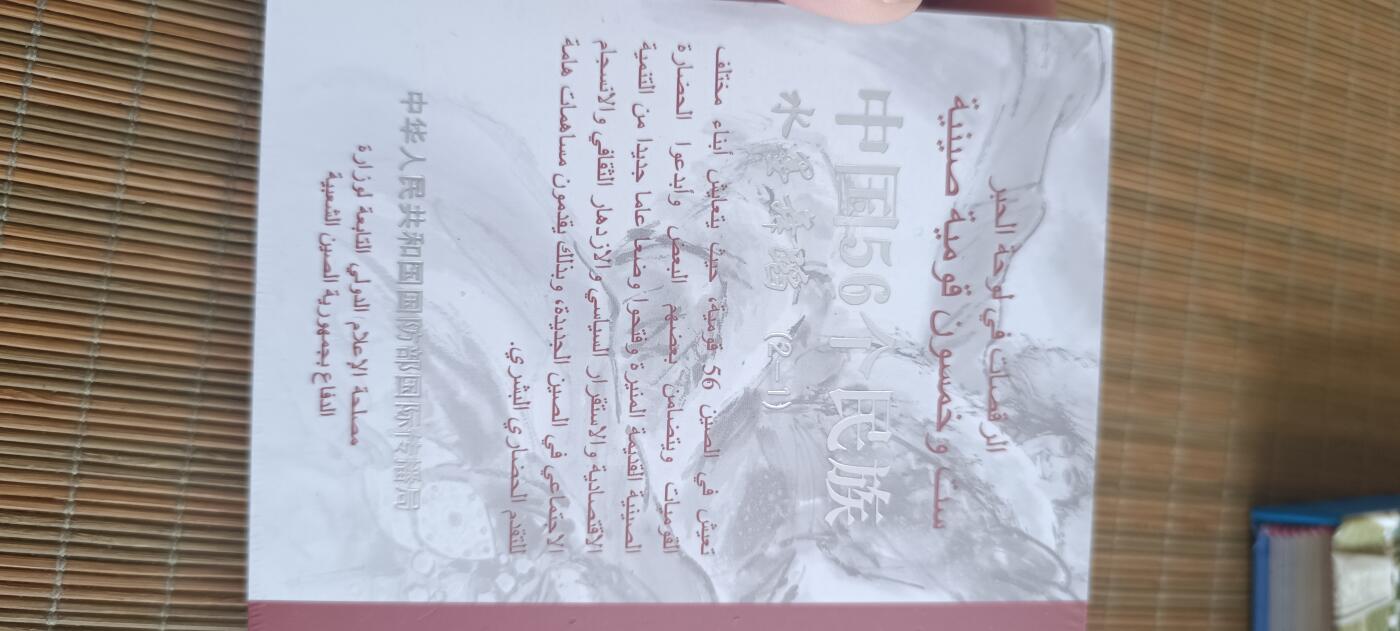 ست وخمسون قومية صينية
الرقصات في لوحة الحبر
中国56个民族
水墨舞蹈 (2—1)
تعيش في الصين 56 قومية، حيث يتعايش أبناء مختلف
القوميات ويتضامن بعضهم البعض وأبدعوا الحضارة
الصينية القديمة المنيرة وفتحوا وضعا عاما جديدا من التنمية
الاقتصادية والاستقرار السياسي والازدهار الثقافي والانسجام
الاجتماعي في الصين الجديدة، وبذلك يقدمون مساهمات هامة
للتقدم الحضاري البشري.
中华人民共和国国防部国际传播局
مصلحة الإعلام الدولي التابعة لوزارة
الدفاع بجمهورية الصين الشعبية